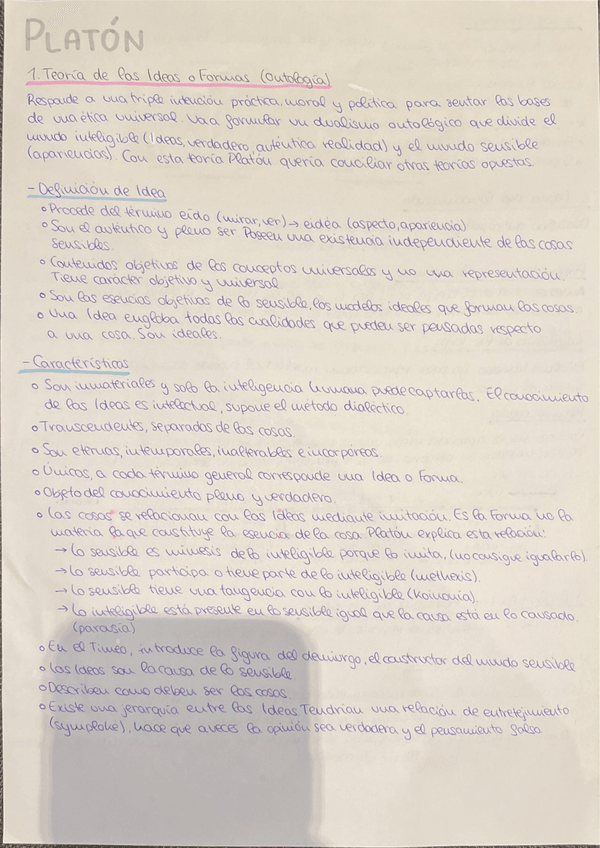 PLATÓN
1. Teoría de las Ideas o Formas (Ontología)
Responde a una triple intención práctica, moral y política para sentar las bases
de una ética universal. Va a formular un dualismo ontológico que divide el
mundo inteligible (Ideas, verdadero, auténtica realidad) y el mundo sensible
(apariencias). Con esta teoría Platón quería conciliar otras teorías opuestas.
- Definición de Idea
o Procede del término eido (mirar, ver) → eidéa (aspecto, apariencia)
o Son el auténtico y pleno ser. Poseen una existencia independiente de las cosas
sensibles.
o Contenidos objetivos de los conceptos universales y no una representación.
Tiene carácter objetivo y universal.
o Son las esencias objetivas de lo sensible, los modelos ideales que forman las cosas.
o Una Idea engloba todas las cualidades que pueden ser pensadas respecto
a una cosa. Son ideales.
- Características
o Son inmateriales y solo la inteligencia humana puede captarlas. El conocimiento
de las Ideas es intelectual, supone el método dialéctico.
o Transcendentes, separadas de las cosas.
o Son eternas, intemporales, inalterables e incorpóreas.
o Únicas, a cada término general corresponde una Idea o Forma.
o Objeto del conocimiento pleno y verdadero.
o Las cosas se relacionan con las Ideas mediante imitación. Es la Forma no la
materia la que constituye la esencia de la cosa. Platón explica esta relación:
→ Lo sensible es mímesis de lo inteligible porque lo imita, (no consigue igualarlo).
→ Lo sensible participa o tiene parte de lo inteligible (methexis).
→ Lo sensible tiene una tangencia con lo inteligible (Koinonía).
→ Lo inteligible está presente en lo sensible igual que la causa está en lo causado.
(parasía)
o En el Timéo, introduce la figura del demiurgo, el constructor del mundo sensible
o Las Ideas son la causa de lo sensible
o Describen como deben ser las cosas.
o Existe una jerarquía entre las Ideas Tendrían una relación de entretejimiento
(symploke), hace que a veces la opinión sea verdadera y el pensamiento falso.